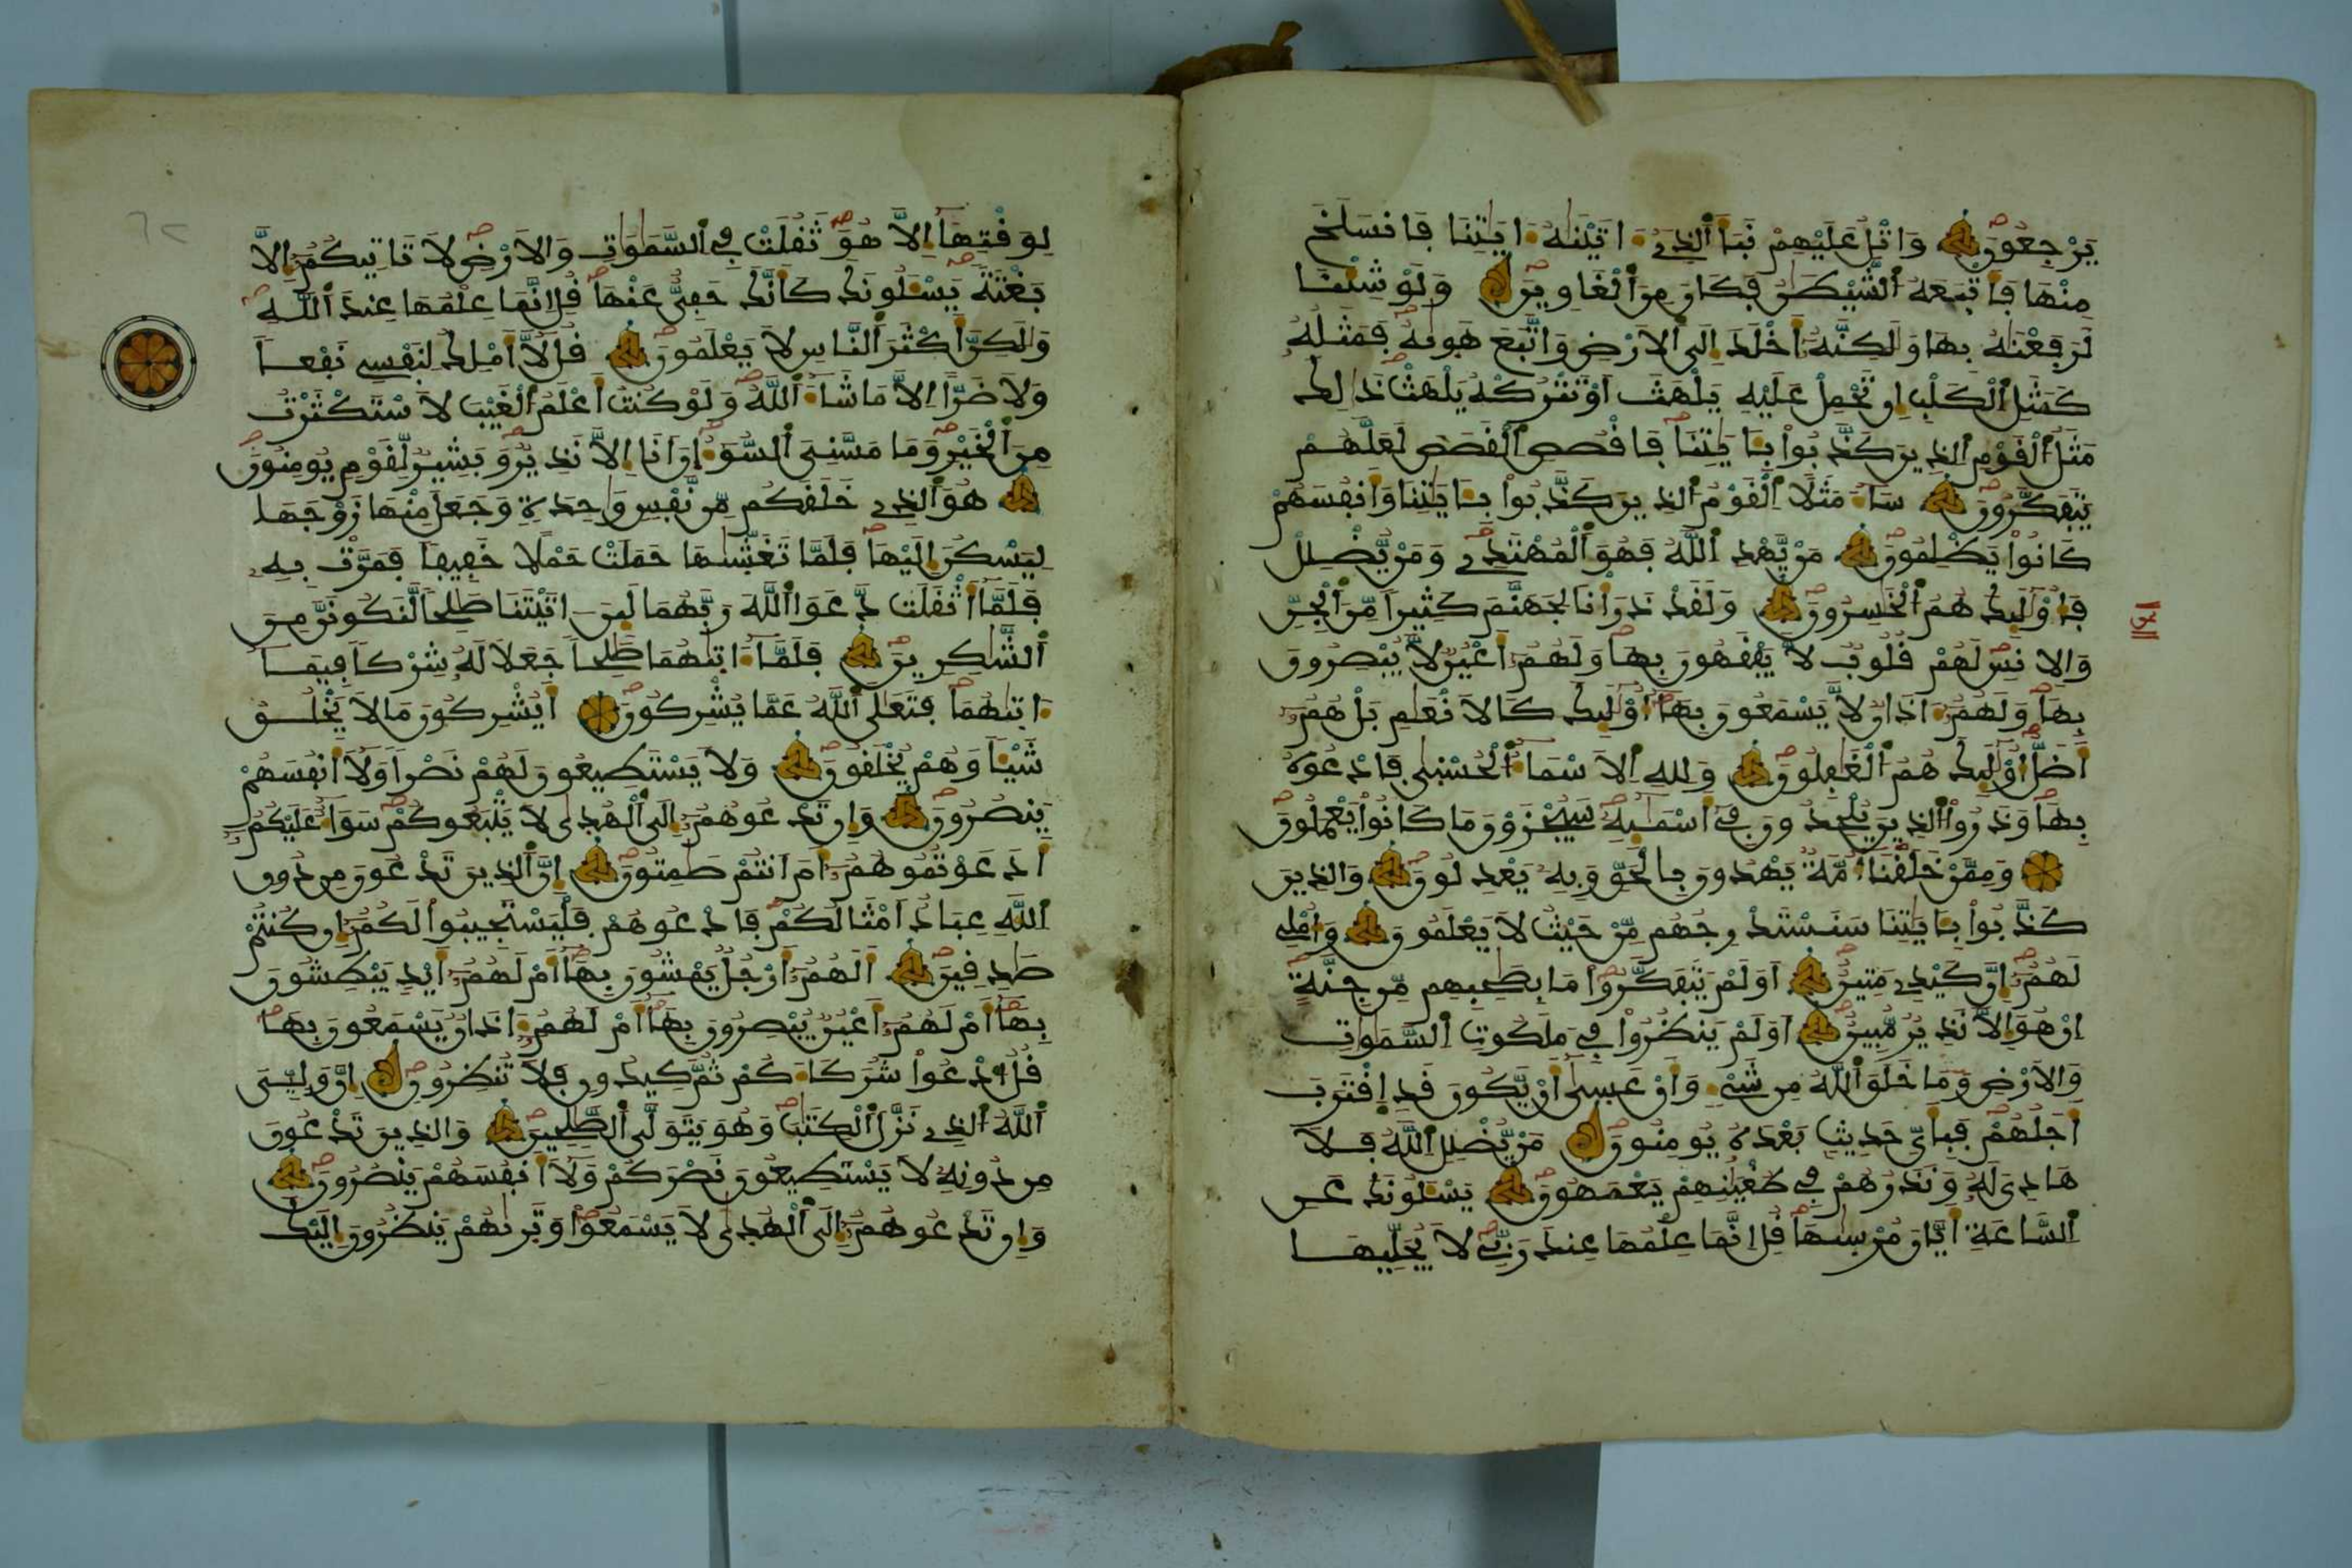 يَرْجِعُونَ وَاتْلُ عَلَيْهِمْ نَبَأَ الذِے ءَاتَيْنَٰهُ ءَايَٰتِنَا فَانسَلَخَ
مِنْهَا فَأَتْبَعَهُ الشَّيْطَٰنُ فَكَانَ مِنَ الْغَاوِينَ وَلَوْ شِئْنَا
لَرَفَعْنَٰهُ بِهَا وَلَٰكِنَّهُ أَخْلَدَ إِلَى الَارْضِ وَاتَّبَعَ هَوٜىٰهُ فَمَثَلُهُ
كَمَثَلِ الْكَلْبِ إِن تَحْمِلْ عَلَيْهِ يَلْهَثَ اَوْ تَتْرُكْهُ يَلْهَث ذَّٰلِكَ
مَثَلُ الْقَوْمِ الذِينَ كَذَّبُواْ بِـَٔايَٰتِنَا فَاقْصُصِ الْقَصَصَ لَعَلَّهُمْ
يَتَفَكَّرُونَ سَآءَ مَثَلًا اِلْقَوْمُ الذِينَ كَذَّبُواْ بِـَٔايَٰتِنَا وَأَنفُسَهُمْ
كَانُواْ يَظْلِمُونَ مَنْ يَّهْدِ اللَّهُ فَهُوَ الْمُهْتَدِے وَمَنْ يُّضْلِلْ
فَأُوْلَٰٓئِكَ هُمُ الْخَٰسِرُونَ وَلَقَدْ ذَرَأْنَا لِجَهَنَّمَ كَثِيرًا مِّنَ الْجِنِّ
وَالِانسِ لَهُمْ قُلُوبٌ لَّا يَفْقَهُونَ بِهَا وَلَهُمُ أَعْيُنٌ لَّا يُبْصِرُونَ
بِهَا وَلَهُمُ ءَاذَانٌ لَّا يَسْمَعُونَ بِهَآ أُوْلَٰٓئِكَ كَالَانْعَٰمِ بَلْ هُمُ
أَضَلُّ أُوْلَٰٓئِكَ هُمُ الْغَٰفِلُونَ وَلِلهِ اِلَاسْمَآءُ الْحُسْنٜىٰ فَادْعُوهُ
بِهَا وَذَرُواْ الذِينَ يُلْحِدُونَ فِےٓ أَسْمَٰٓئِهِ سَيُجْزَوْنَ مَا كَانُواْ يَعْمَلُونَ
وَمِمَّنْ خَلَقْنَآ أُمَّةٌ يَهْدُونَ بِالْحَقِّ وَبِهِ يَعْدِلُونَ وَالذِينَ
كَذَّبُواْ بِـَٔايَٰتِنَا سَنَسْتَدْرِجُهُم مِّنْ حَيْثُ لَا يَعْلَمُونَ وَأُمْلِے
لَهُمُ إِنَّ كَيْدِے مَتِينٌ اَوَلَمْ يَتَفَكَّرُواْ مَا بِصَٰحِبِهِم مِّن جِنَّةٍ
اِنْ هُوَ إِلَّا نَذِيرٌ مُّبِينٌ اَوَلَمْ يَنظُرُواْ فِے مَلَكُوتِ اِلسَّمَٰوَٰتِ
وَالَارْضِ وَمَا خَلَقَ اللَّهُ مِن شَےْءٍ وَأَنْ عَسٜىٰٓ أَنْ يَّكُونَ قَدِ اِقْتَرَبَ
أَجَلُهُمْ فَبِأَيِّ حَدِيثٍ بَعْدَهُ يُومِنُونَ مَنْ يُّضْلِلِ اِللَّهُ فَلَا
هَادِيَ لَهُ وَنَذَرُهُمْ فِے طُغْيَٰنِهِمْ يَعْمَهُونَ يَسْـَٔلُونَكَ عَنِ
اِلسَّاعَةِ أَيَّانَ مُرْسٜىٰهَا قُلِ اِنَّمَا عِلْمُهَا عِندَ رَبِّے لَا يُجَلِّيهَا
الحزب
لِوَقْتِهَآ إِلَّا هُوَ ثَقُلَتْ فِے اِلسَّمَٰوَٰتِ وَالَارْضِ لَا تَاتِيكُمُ إِلَّا
بَغْتَةً يَسْـَٔلُونَكَ كَأَنَّكَ حَفِيٌّ عَنْهَا قُلِ اِنَّمَا عِلْمُهَا عِندَ اَللَّهِ
وَلَٰكِنَّ أَكْثَرَ اَلنَّاسِ لَا يَعْلَمُونَ قُل لَّآ أَمْلِكُ لِنَفْسِے نَفْعًا
وَلَا ضَرًّا اِلَّا مَا شَآءَ اَللَّهُ وَلَوْ كُنتُ أَعْلَمُ الْغَيْبَ لَاسْتَكْثَرْتُ
مِنَ اَلْخَيْرِ وَمَا مَسَّنِيَ اَلسُّوٓءُ إِنَ اَنَا إِلَّا نَذِيرٌ وَبَشِيرٌ لِّقَوْمٍ يُومِنُونَ
هُوَ اَلذِے خَلَقَكُم مِّن نَّفْسٍ وَٰحِدَةٍ وَجَعَلَ مِنْهَا زَوْجَهَا
لِيَسْكُنَ إِلَيْهَا فَلَمَّا تَغَشّٜىٰهَا حَمَلَتْ حَمْلًا خَفِيفًا فَمَرَّتْ بِهِ
فَلَمَّآ أَثْقَلَت دَّعَوَا اَللَّهَ رَبَّهُمَا لَئِنَ اٰتَيْتَنَا صَٰلِحًا لَّنَكُونَنَّ مِنَ
اَلشَّٰكِرِينَ فَلَمَّآ ءَاتٜىٰهُمَا صَٰلِحًا جَعَلَا لَهُ شِرْكًا فِيمَآ
ءَاتٜىٰهُمَا فَتَعَٰلَى اَللَّهُ عَمَّا يُشْرِكُونَ أَيُشْرِكُونَ مَا لَا يَخْلُقُ
شَيْـًٔا وَهُمْ يُخْلَقُونَ وَلَا يَسْتَطِيعُونَ لَهُمْ نَصْرًا وَلَآ أَنفُسَهُمْ
يَنصُرُونَ وَإِن تَدْعُوهُمُ إِلَى اَلْهُدٜىٰ لَا يَتْبَعُوكُمْ سَوَآءٌ عَلَيْكُمُ
أَدَعَوْتُمُوهُمُ أَمَ اَنتُمْ صَٰمِتُونَ إِنَّ اَلذِينَ تَدْعُونَ مِن دُونِ
اِللَّهِ عِبَادٌ اَمْثَالُكُمْ فَادْعُوهُمْ فَلْيَسْتَجِيبُواْ لَكُمُ إِن كُنتُمْ
صَٰدِقِينَ أَلَهُمُ أَرْجُلٌ يَمْشُونَ بِهَآ أَمْ لَهُمُ أَيْدٍ يَبْطِشُونَ
بِهَآ أَمْ لَهُمُ أَعْيُنٌ يُبْصِرُونَ بِهَآ أَمْ لَهُمُ ءَاذَانٌ يَسْمَعُونَ بِهَا
قُلُ اُدْعُواْ شُرَكَآءَكُمْ ثُمَّ كِيدُونِ فَلَا تُنظِرُونِ إِنَّ وَلِيِّيَ
اَللَّهُ اُلذِے نَزَّلَ اَلْكِتَٰبَ وَهُوَ يَتَوَلَّى اَلصَّٰلِحِينَ وَالذِينَ تَدْعُونَ
مِن دُونِهِ لَا يَسْتَطِيعُونَ نَصْرَكُمْ وَلَآ أَنفُسَهُمْ يَنصُرُونَ
وَإِن تَدْعُوهُمُ إِلَى اَلْهُدٜىٰ لَا يَسْمَعُواْ وَتَرٜىٰهُمْ يَنظُرُونَ إِلَيْكَ